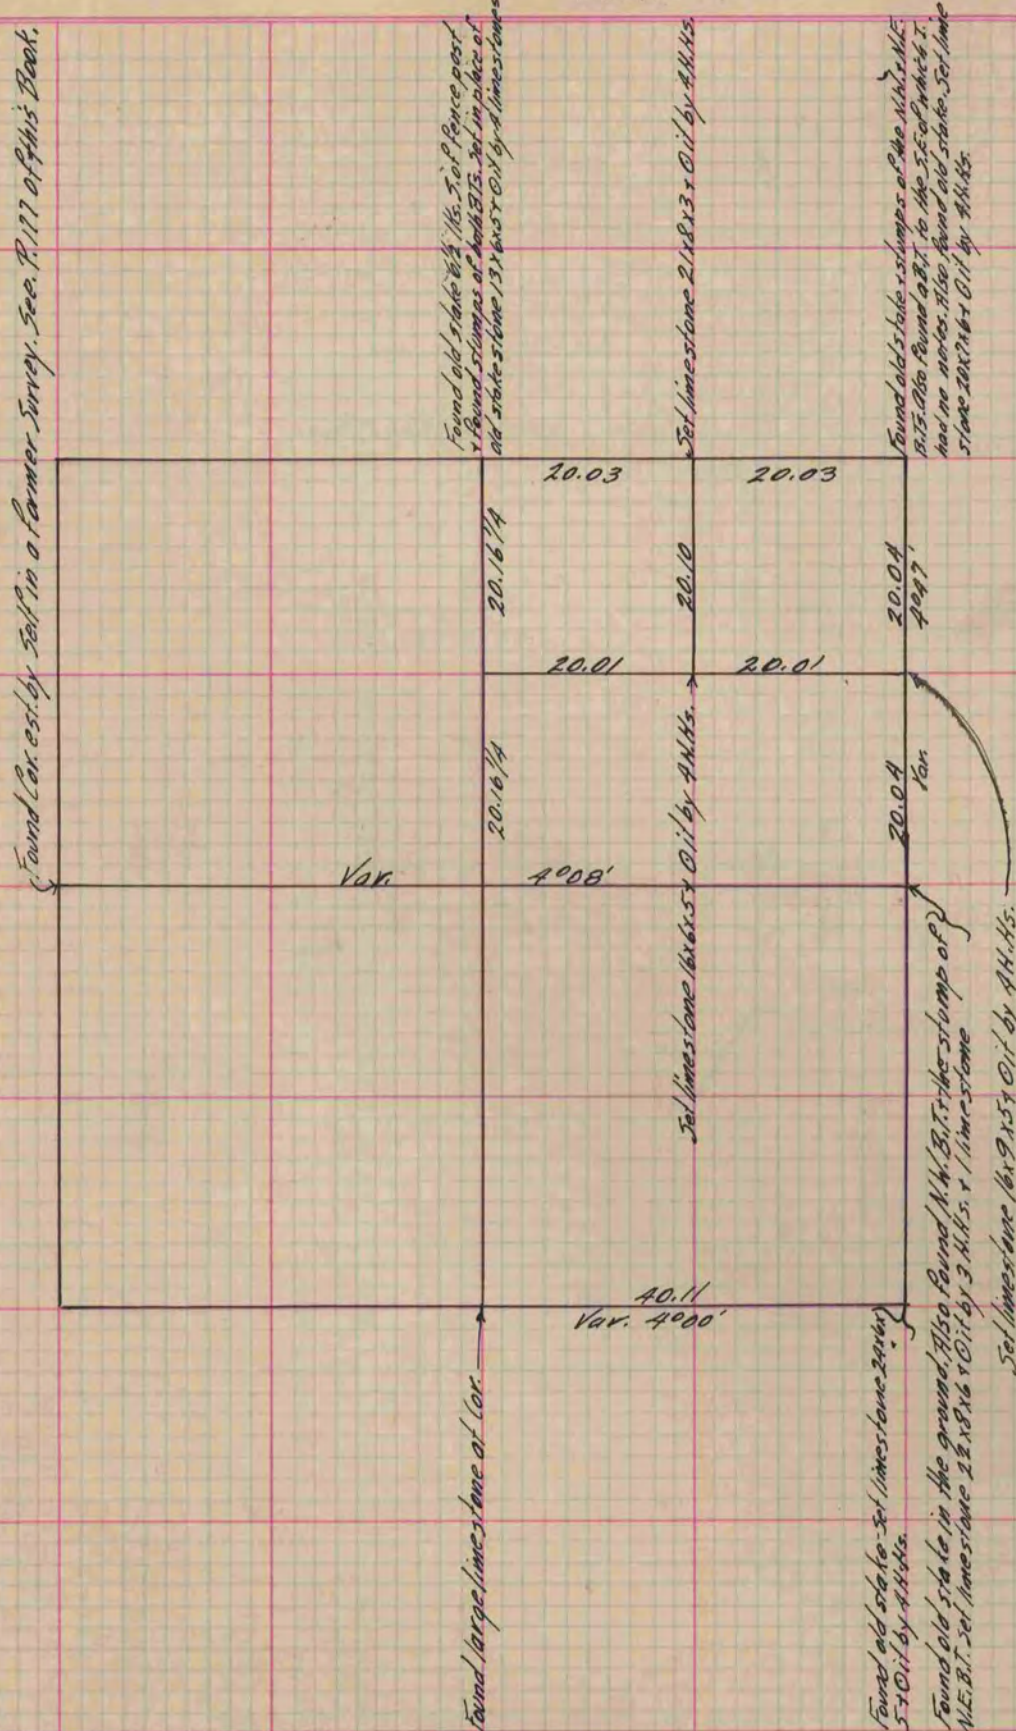 Found Cor. est. by Self in a former Survey. See. P. 177 of this Book.
Found old stake 6½ lks. S. of fence post
+ found stumps of both B.Ts. Set in place of
old stake stone 13x6x5 + O it by 4 limestones
Set limestone 21x8x3 + O it by 4 H.Hs.
Found old stake + stumps of the N.W. + N.E.
B.Ts. Also found a B.T. to the S.E. of which I
had no notes. Also found old stake. Set lime
stone 20x7x6 + O it by 4 H.Hs.
20.03
20.03
20.16¼
20.10
20.04
4°47'
20.01
20.01
20.16¼
20.04
Var.
Set limestone 16x6x5 + O it by 4 H.Hs.
Var.
4°08'
40.11
Var. 4°00'
Found large limestone at Cor.
Found old stake - Set limestone 24x6x
5 + O it by 4 H.Hs.
Found old stake in the ground. Also found N.W. B.T. + the stump of
N.E. B.T. Set limestone 22x8x6 + O it by 3 H.Hs. + 1 limestone
Set limestone 16x9x5 + O it by 4 H.Hs.